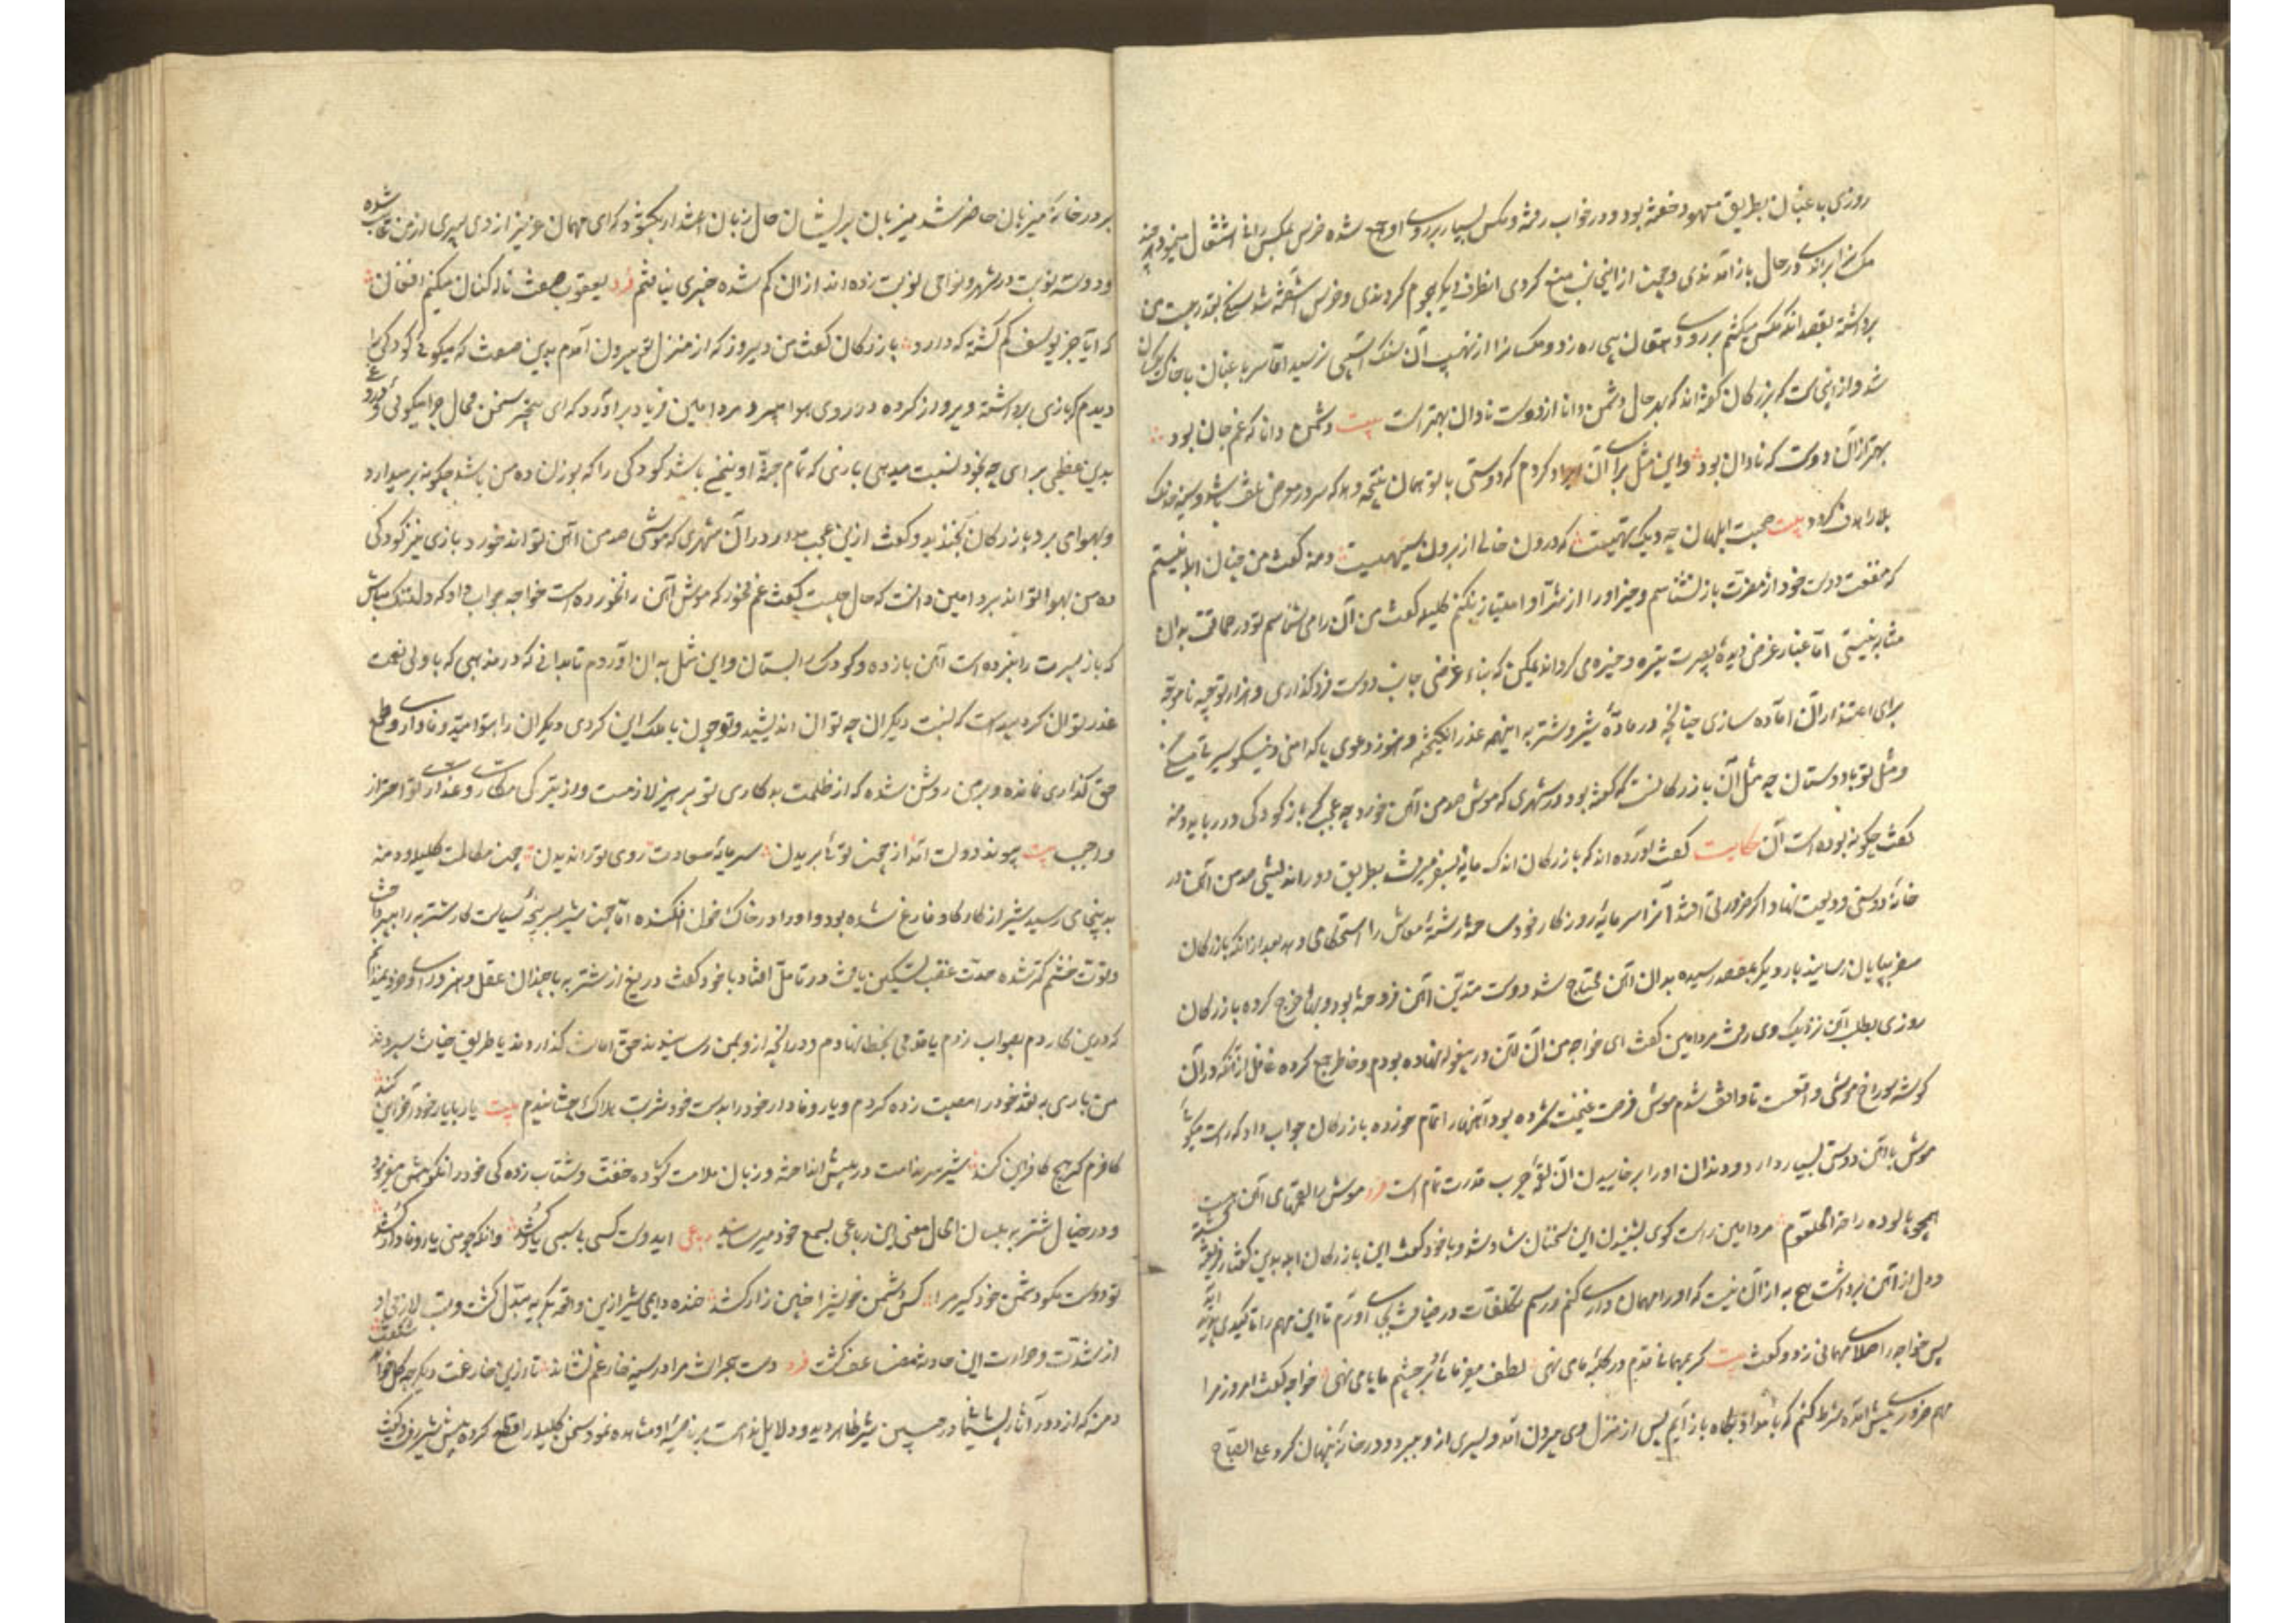 روزی باغبان بطریق معهود خفته بود و در خواب رفته و مکس بسیار بر روی او جمع شده خرس بمکس رانی اشتغال مینمود هر چند
مکس را براندی در حال باز آمدندی و چون از این جانب منع کردی از طرف دیگر هجوم کردندی و خرس آشفته شد سنگی بقدر بیست من
برداشته بقصد آنکه مکس میکشم بر روی دهقان بیچاره زد و مکس را از نهیب آن سنگ آسیبی نرسید اما سر باغبان با خاک یکسان
شد و از اینجاست که بزرگان گفته‌اند که بهر حال دشمن دانا از دوست نادان بهتر است بیت دشمن دانا که غم جان بود
بهتر از آن دوست که نادان بود و این مثل برای آن ایراد کردم که دوستی با تو همان نتیجه دهد که سر در معرض تلف باشد و سینه هدف
بلا را هدف گردد بیت صحبت ابلهان چو دیک تهیست که درون خالی از برون سیهیست دمنه گفت من چنان ابله نیستم
که منفعت دوست خود از مضرت باز نشناسم و خیر او را از شر او امتیاز نکنم کلیله گفت من آن را می‌شناسم تو در حماقت بدان
مثابه نیستی اما غبار غرض دیده بصیرت تیره و خیره می‌گرداند یمکن که بناء غرضی جانب دوست فرو گذاری و هزار توجیه ناموجه
برای اعتذار آن آماده سازی چنانچه در ماده شیر و شتربه اینهمه عذر انگیخته و هنوز دعوی پاکدامنی و نیکو سیرتی
و مثل تو با دوستان چو مثل آن بازرگانست که گفته بود در شهری که موش صد من آهن خورد چه عجب که باز کودکی در رباید دمنه
گفت چگونه بوده است آن حکایت گفت آورده‌اند که بازرگان اندک مایه بسفر میرفت بطریق دور اندیشی صد من آهن در
خانه دوستی ودیعت نهاد تا اگر ضرورتی افتد آنرا سرمایه روزگار خود ساخته رشته معاش را استحکامی دهد بعد از آنکه بازرگان
سفر بپایان رسانید بار دیگر بمقصد رسیده بدان آهن محتاج شد دوست متدین آهن فروخته بود و بها خرج کرده بازرگان
روزی بطلب آهن نزدیک وی رفت مرد امین گفت ای خواجه من آن آهن در بیغوله نهاده بودم و خاطر جمع کرده غافل از آنکه در آن
گوشه سوراخ موشی واقعست تا واقف شدم موش فرصت غنیمت شمرده بود آهن را تمام خورده بازرگان جواب داد که راست میگوئی
موش با آهن دوستی بسیار دارد و دندان او را بر خاییدن آن لقمه چرب قدرت تمام است فرد موش را لقمهای آهن هست
همچو پالوده راحة الحلقوم مرد امین راست گوی بشنیدن این سخنان شاد شد و با خود گفت این بازرگان ابله بدین گفتار فریفته
و دل از آهن برداشت هیچ به از آن نیست که او را مهمان داری کنم و رسم تکلفات در ضیافت بجای آورم تا این مهم را تاکیدی پدید آید
پس خواجه را صلای مهمانی زد و گفت بیت کر بمهمانی قدم در کلبه ما می‌نهی لطف میفرمائی و بر چشم ما پا می‌نهی خواجه گفت امروز مرا
مهم ضروری پیش آمده شرط کنم که بامداد پگاه باز آیم پس از منزل وی بیرون آمد و پسری از او ببرد و در خانه پنهان کرد علی الصباح
بر در خانه میزبان حاضر شد میزبان پریشان حال زبان اعتذار بگشود که ای مهمان عزیز از دی پسری از من غایب شده
و دو سه نوبت در شهر و نواحی نوبت زده‌اند از آن گم شده خبری نیافتم فرد یعقوب صفت ناله کنان میکنم افغان
که آیا خبر یوسف گم گشته که دارد بازرگان گفت من دیروز که از منزل تو بیرون آمدم بدین صفت که میگوئی کودکی را
دیدم که بازی برداشته و پرواز کرده در روی هوا میبرد مرد امین فریاد برآورد که ای بیخبر سخن محال چرا میگوئی و دروغ
بدین عظیمی برای چه بخود نسبت میدهی بازی که تمام جثه او نیم من باشد کودکی را که بوزن ده من باشد چگونه بر میدارد
و بهوا می‌برد بازرگان بخندید و گفت ازین عجب مدار در آن شهری که موشی صد من آهن تواند خورد بازی نیز کودکی
ده من بهوا تواند برد امین دانست که حال چیست گفت غم مخور که موش آهن را نخورده است خواجه جواب داد که دلتنگ مباش
که باز پسرت را نبرده است آهن باز ده و کودک را بستان و این مثل بدان آوردم تا بدانی که در مذهبی که با ولی نعمت
غدر توان کرد پیداست که نسبت دیگران چه توان اندیشید و تو چون با ملک این کردی دیگران را بتو امید وفاداری و طمع
حق گذاری نمانده و بر من روشن شده که از ظلمت بدکاری تو پرهیز لازمست و از تیرگی مکاری و غداری تو احتراز
واجب بیت پیوند دولت آمد از چون تو بریدن سرمایه سعادت روی ترا ندیدن چون مکالمت کلیله و دمنه
بدینجای رسید شیر از کار گاو فارغ شده بود و او را در خاک خون افکنده اما چون شیر بسر پنجه سیاست کار شتربه را بپرداخت
و قوت خشم کمتر شده حدت غضب تسکین یافت در تامل افتاد با خود گفت دریغ از شتربه با چندان عقل و هنر و رای و خرد نمیدانم
که درین کار دم بصواب زدم یا قدمی بخطا نهادم و در آنچه از او بمن رسانیدند حق امانت گذاردند یا طریق خیانت سپردند
من باری به نقد خود را مصیبت زده کردم و یار وفادار خود را بدست خود شربت هلاک چشانیدم بیت یار بایار خود آخر این کند
کافرم گر هیچ کافر این کند شیر سر ندامت در پیش انداخته و زبان ملامت گشوده خفت و شتاب زدگی خود را نکوهش میفرمود
و در خیال شتربه بلسان الحال معنی این رباعی بسمع خود میرسانید رباعی ایدوست کسی با سببی یار کشد وانکه چو منی یار وفادار کشد
تو دوست مگو دشمن خود گیر مرا کس دشمن خویش را چنین زار کشد خنده دایمی شیر ازین واقعه بگریه مبدل گشت
از شدت و حرارت این حادثه مضاعف گشت فرد دست هجرانت مرا در سینه خار غم نشاند تا ازین خار غمت دیگر چه گل خواهد شکفت
دمنه که از دور آثار پشیمانی در جبین شیر ظاهر دید و دلایل ندامت بر ناصیه او مشاهده نمود سخن کلیله را قطع کرده پیش شیر رفت و گفت